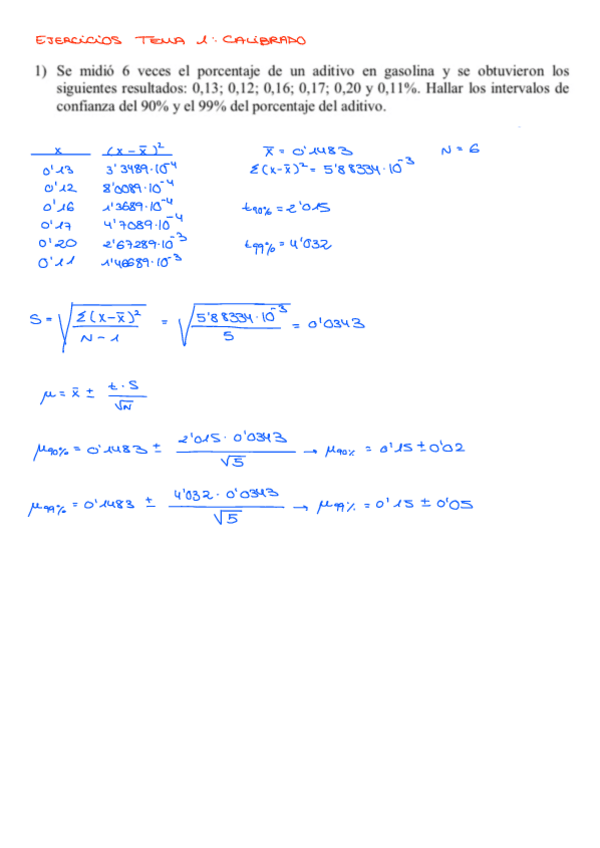 EJERCICIOS TEMA 1: CALIBRADO
1) Se midió 6 veces el porcentaje de un aditivo en gasolina y se obtuvieron los
siguientes resultados: 0,13; 0,12; 0,16; 0,17; 0,20 y 0,11%. Hallar los intervalos de
confianza del 90% y el 99% del porcentaje del aditivo.
x (x - x̄)² x̄ = 0'1483 N = 6
0'13 3'3489·10⁻⁴ Σ(x-x̄)² = 5'88334·10⁻³
0'12 8'0089·10⁻⁴
0'16 1'3689·10⁻⁴ t90% = 2'015
0'17 4'7089·10⁻⁴
0'20 2'67289·10⁻³ t99% = 4'032
0'11 1'46689·10⁻³
S = √(Σ(x-x̄)² / N-1) = √(5'88334·10⁻³ / 5) = 0'0343
μ = x̄ ± t·S / √N
μ90% = 0'1483 ± 2'015·0'0343 / √5 → μ90% = 0'15 ± 0'02
μ99% = 0'1483 ± 4'032·0'0343 / √5 → μ99% = 0'15 ± 0'05